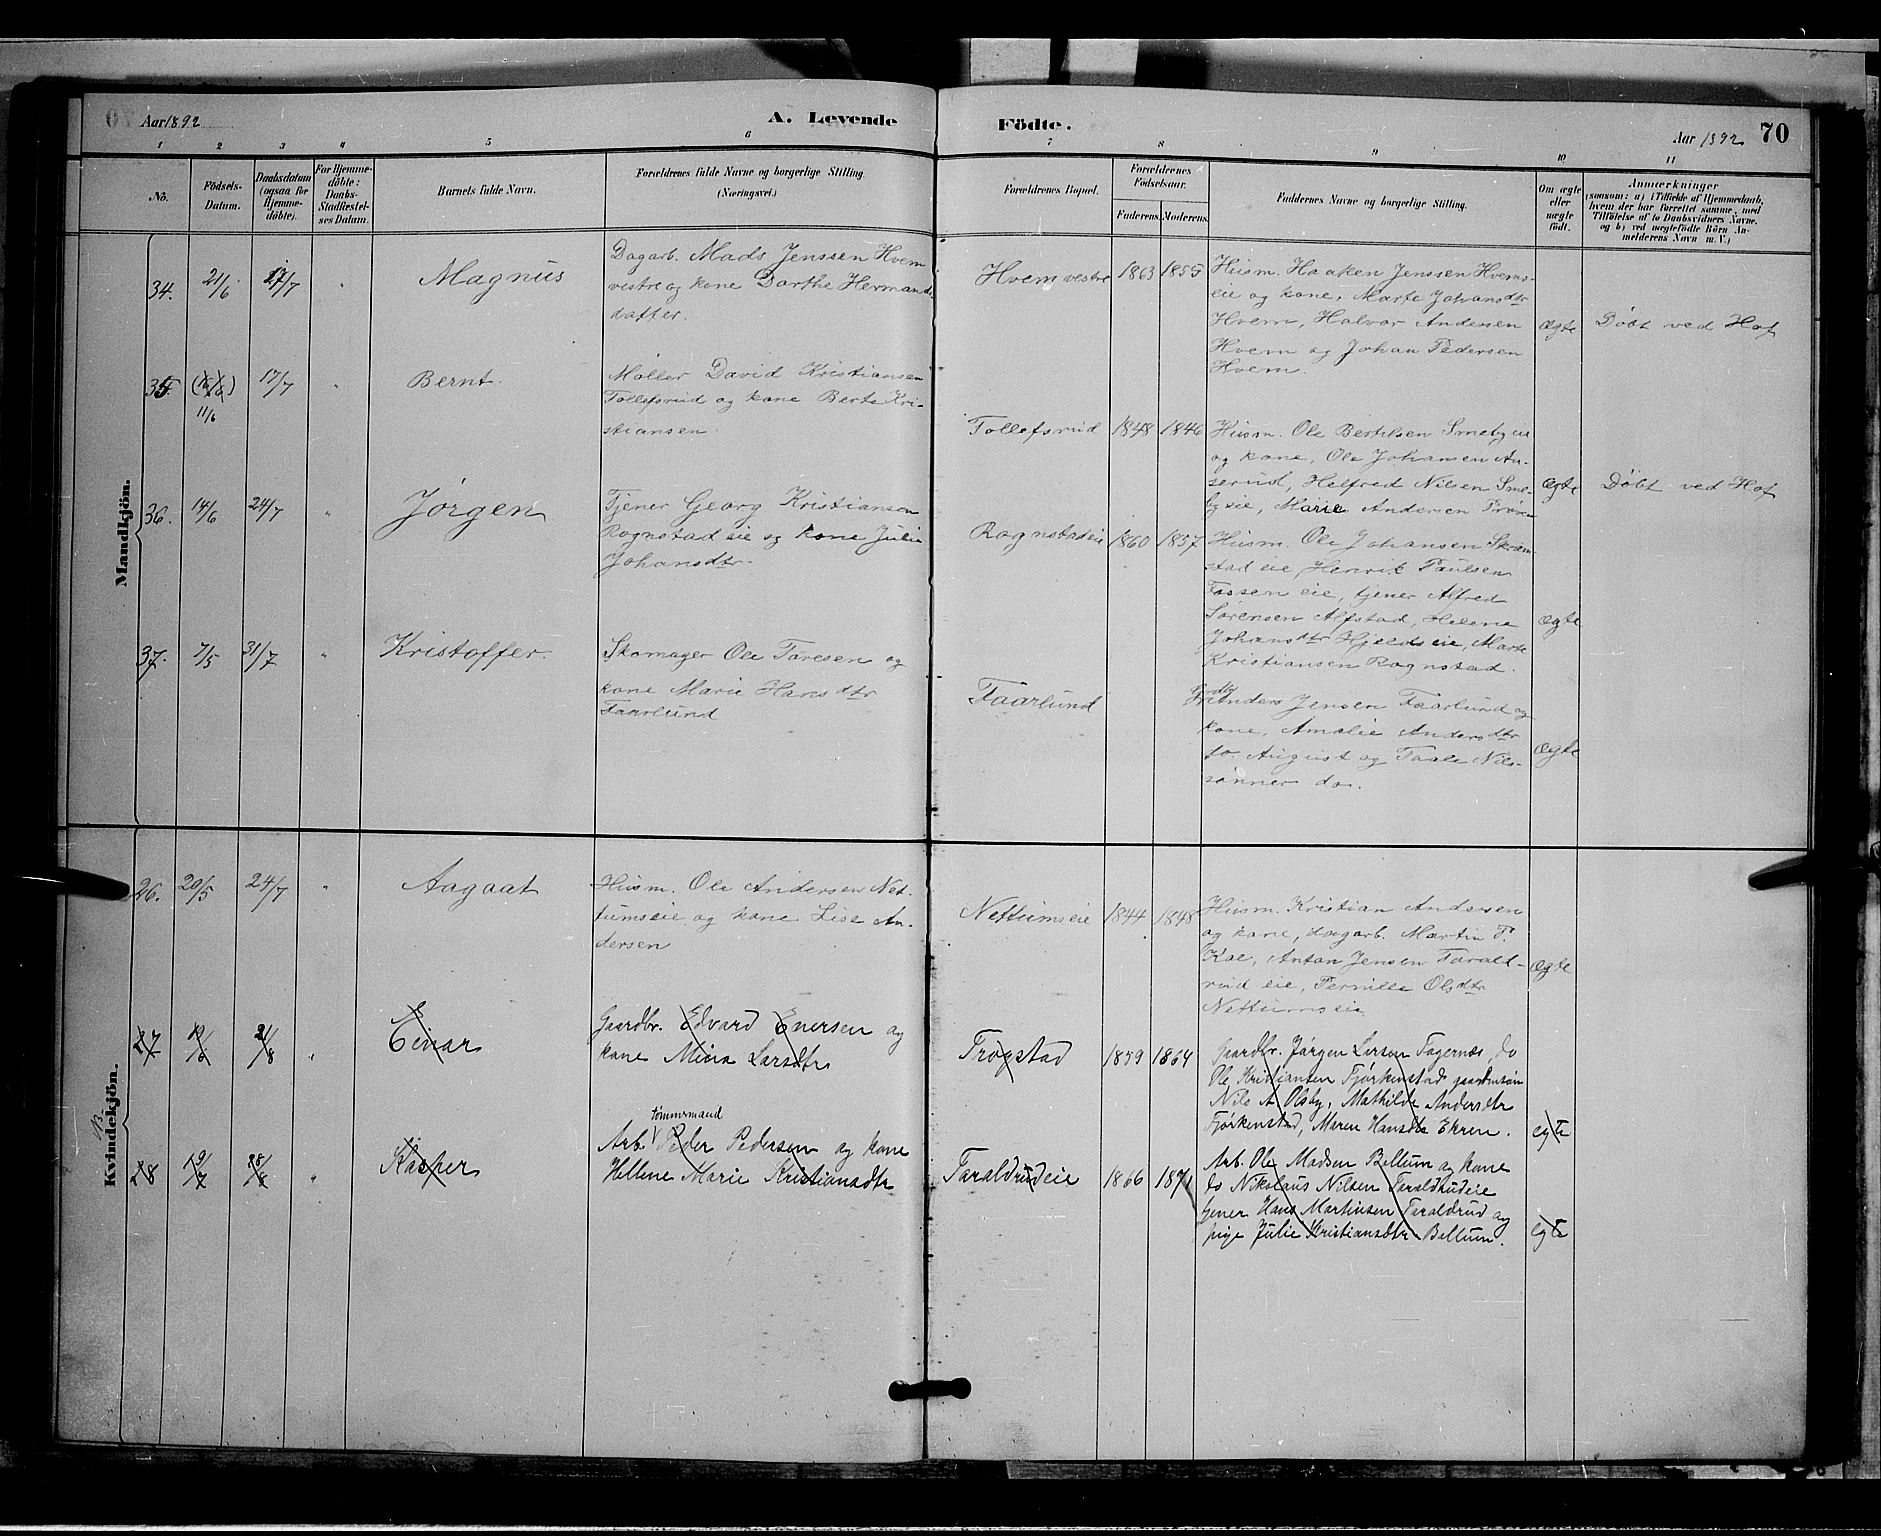 Aar 1892
A. Levende
Födte.
Aar 1892
70
1 2 3 4 5 6 7 8 9 10 11
No.
Födsels-
Datum.
Daabsdatum
(ogsaa for
Hjemme-
døbte).
For Hjemme-
døbte:
Daabs-
Stadfæstel-
ses Datum.
Barnets fulde Navn.
Forældrenes fulde Navne og borgerlige Stilling.
(Næringsvei.)
Forældrenes Bopæl.
Forældrenes
Födselsaar.
Faderens.
Moderens.
Faddernes Navne og borgerlige Stilling.
Om ægte
eller
uægte
født.
Anmærkninger
(saasom: a) i Tilfælde af Hjemmedaab,
hvem der har forrettet samme, med
Tilføielse af to Daabsvidners Navne,
og b) ved uægtefødte Börn An-
melderens Navn m. V.)
Mandkjön.
34.
21/6
17/7
"
Magnus
Dagarb. Mads Jenssen Hvem
vestre og kone Darthe Hermands
datter.
Hvem vestre
1863
1855
Husm. Haaken Jenssen Hvems-
eie og kone, Marte Johansdtr
Hvem, Halvor Andersen
Hvem og Johan Pedersen
Hvem.
Ægte
Døbt ved Hof
35.
11/6
17/7
"
Bernt.
Møller David Kristiansen
Tollefsrud og kone Berte Kri-
stiansen.
Tollefsrud
1848
1846
Husm. Ole Bertelsen Smebyeie
og kone, Ole Johansen An-
serud, Helfred Nilsen Sme-
byeie, Marie Andersen
Ægte
Døbt ved Hof
36.
14/6
24/7
"
Jørgen
Tjener Georg Kristiansen
Rognstad eie og kone Julie
Johansdtr.
Rognstadeie
1860
1857
Husm. Ole Johansen Skram-
stad eie, Henrik Paulsen
Fossen eie, tjener Alfred
Sørensen Alfstad, Helene
Johansdtr Hjeldseie, Marte
Kristiansen Rognstad.
Ægte
37.
7/5
31/7
"
Kristoffer.
Skomager Ole Taresen og
kone Marie Hansdtr
Faarlund
Faarlund
Anders Jensen Faarlund og
kone, Amalie Andersdtr
do. August og Taale Nils-
sønner do.
Ægte
Kvindekjön.
26.
20/5
24/7
"
Aagaat
Husm. Ole Andersen Net-
tumseie og kone Lise An-
dersen
Nettumseie
1844
1848
Husm. Kristian Andersen
og kone, dagarb. Martin P.
Kae, Anton Jensen Tarald-
rud eie, Pernille Olsdtr
Nettumseie
Ægte
27
19/6
21/8
"
Einar
Gaardbr. Edvard Enersen og
kone Mina Larsdtr
Trogstad
1859
1864
Gaardbr. Jørgen Larsen Fagernæs, do
Ole Kristiansen Fjørkenstad gaardmsøn
Nils A. Olsby, Mathilde Andersdtr
Fjørkenstad, Maren Hansdtr Ekren.
egte
28
19/7
28/8
"
Kasper
tømmermand
Arb. Peder Pedersen og kone
Hellene Marie Kristiansdtr
Taraldrudeie
1866
1871
Arb. Ole Madsen Bellum og kone
do Nikolaus Nilsen Taraldrudeie
tjener Hans Martinsen Taraldrud og
pige Julie Kristiansdtr Bellum.
egte